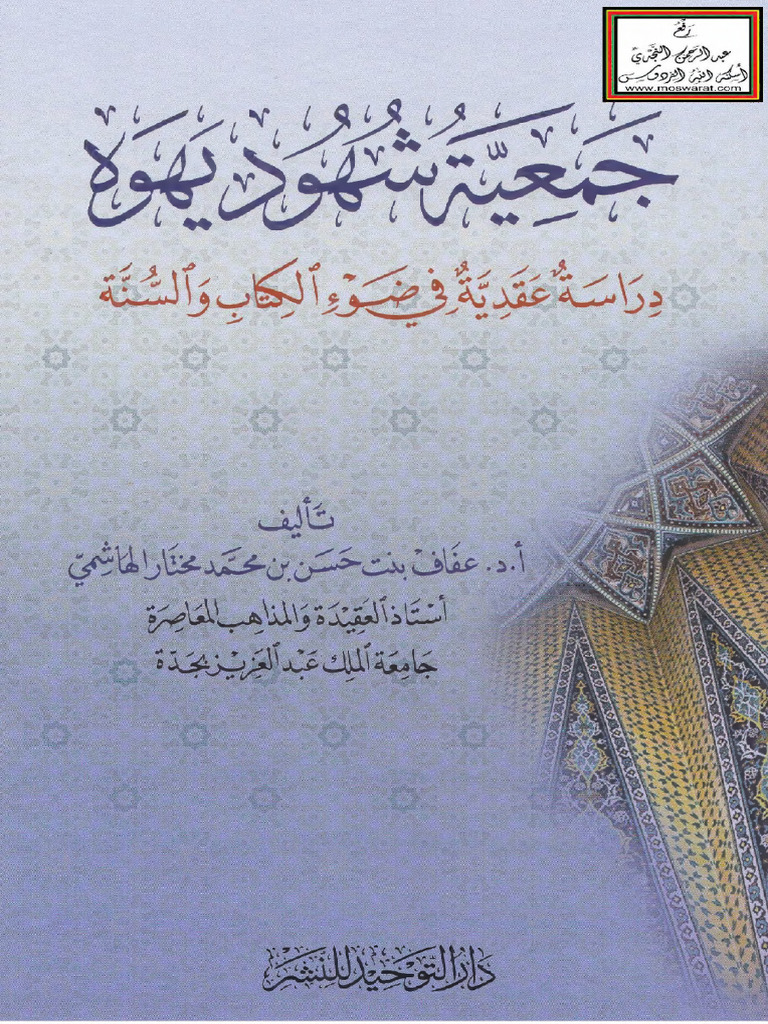 رفع
عبد الرحمن النجدي
أسكنه الله الفردوس
www.moswarat.com
جَمْعِيَّةُ شُهُود يَهْوَه
دِرَاسَةٌ عَقَدِيَّةٌ فِي ضَوْءِ الكِتَابِ وَالسُّنَّة
تَأليف
أ.د. عفاف بنت حسَن بن محمّد مختار الهاشميّ
أسْتَاذ العَقِيدَة وَالمذاهِب المعَاصِرَة
جَامِعَة الملِك عَبْد العَزيْز بجَدّة
دَارُ التَّوحِيد للنَّشر